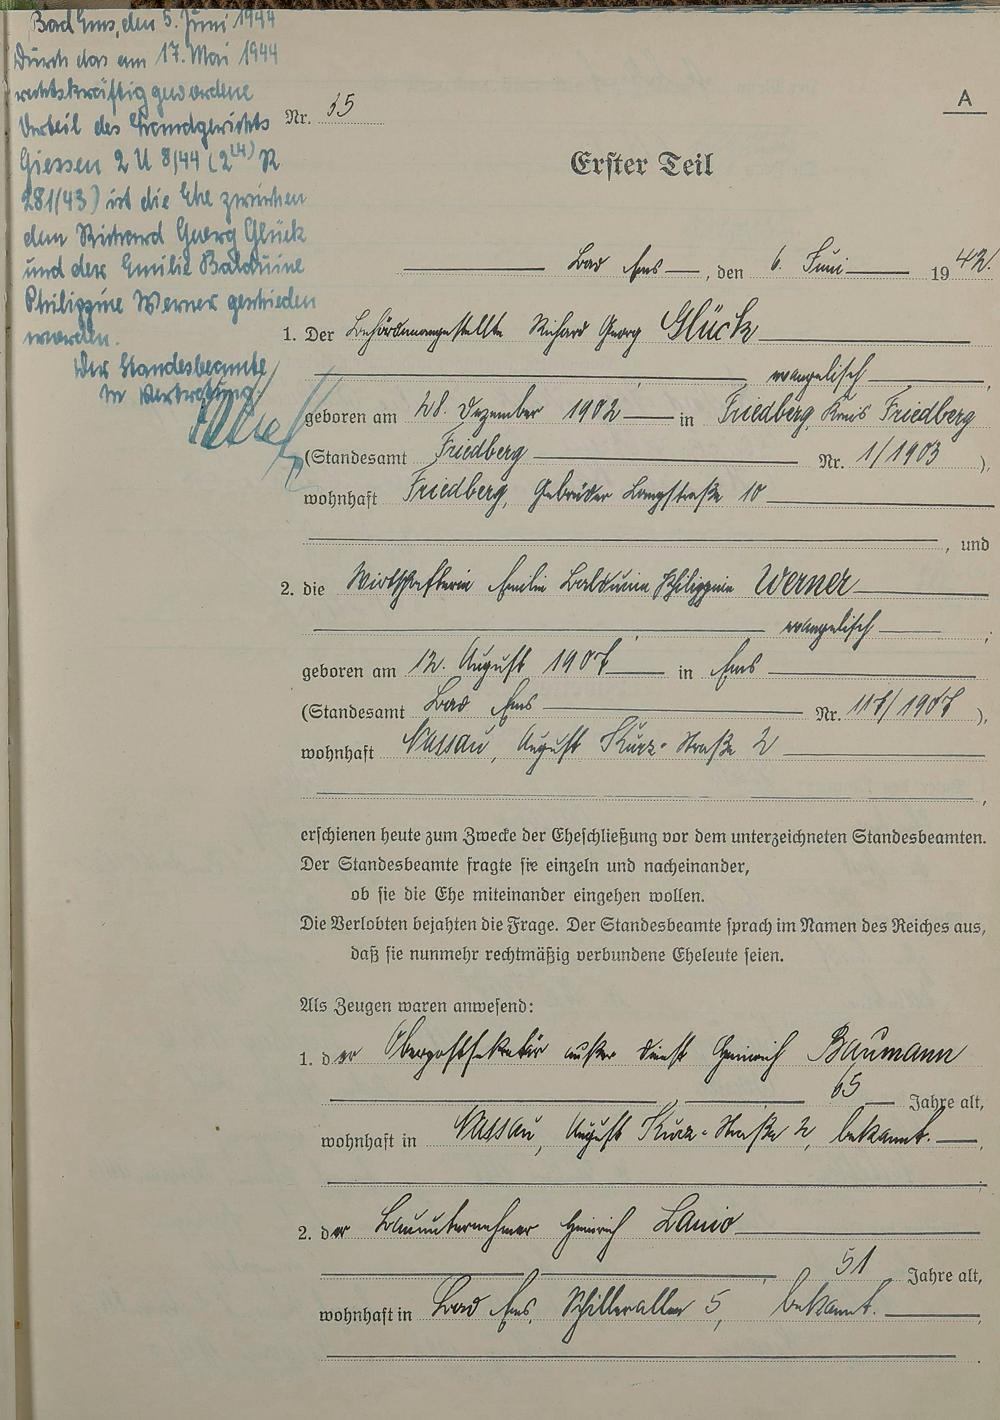 Bad Ems, den 5. Juni 1944
Durch das am 17. Mai 1944
rechtskräftig gewordene
Urteil des Landgerichts
Giessen 2 U 8/44 (2 R
281/43) ist die Ehe zwischen
dem Richard Georg Glück
und der Emilie Balduine
Philippine Werner geschieden
worden.
Der Standesbeamte
In Vertretung:
A
Nr. 35
Erster Teil
Bad Ems, den 6. Juni 1942.
1. Der Behördenangestellte Richard Georg Glück
evangelisch,
geboren am 28. Dezember 1902 in Friedberg, Kreis Friedberg
(Standesamt Friedberg Nr. 1/1903),
wohnhaft Friedberg, Gebrüder Langstraße 10
, und
2. die Wirtschafterin Emilie Balduine Philippine Werner
evangelisch;
geboren am 12. August 1907 in Ems
(Standesamt Bad Ems Nr. 117/1907),
wohnhaft Nassau, August Kurz-Straße 2
,
erschienen heute zum Zwecke der Eheschließung vor dem unterzeichneten Standesbeamten.
Der Standesbeamte fragte sie einzeln und nacheinander,
ob sie die Ehe miteinander eingehen wollen.
Die Verlobten bejahten die Frage. Der Standesbeamte sprach im Namen des Reiches aus,
daß sie nunmehr rechtmäßig verbundene Eheleute seien.
Als Zeugen waren anwesend:
1. der Oberpostsekretär außer Dienst Heinrich Baumann
65 Jahre alt,
wohnhaft in Nassau, August Kurz-Straße 2, bekannt.
2. der Bauunternehmer Heinrich Lanio
51 Jahre alt,
wohnhaft in Bad Ems, Schillerallee 5, bekannt.